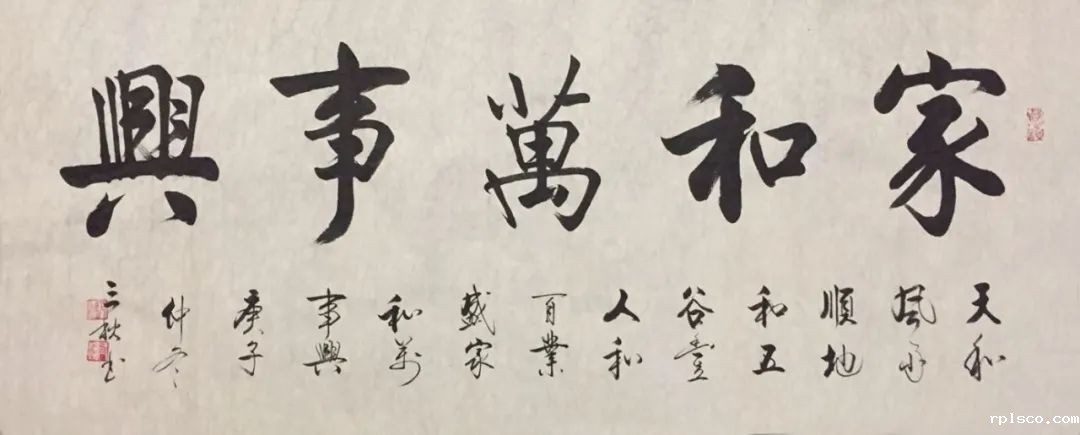 家和萬事興
天和
風雨
順地
和五
谷豐
人和
百業
盛家
和萬
事興
庚子
仲冬
三秋书
rplsco.com